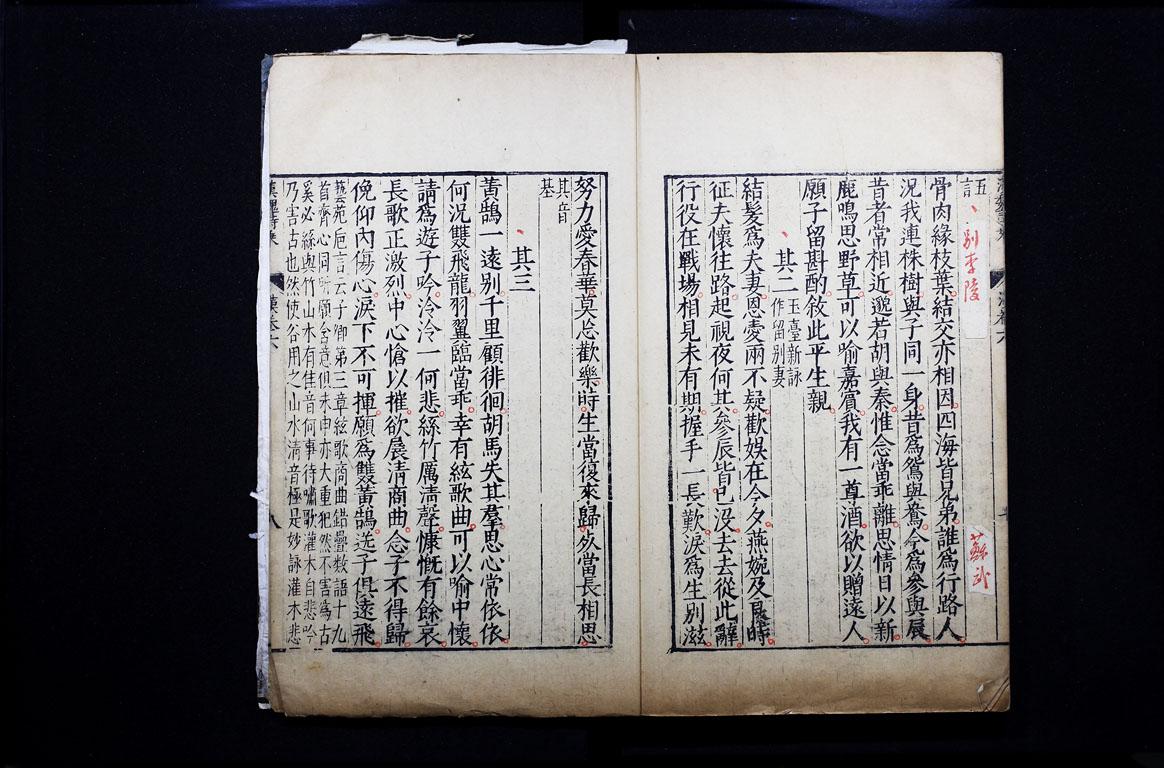 五
言
別李陵
蘇武
骨肉緣枝葉結交亦相因四海皆兄弟誰為行路人
況我連株樹與子同一身昔為鴛與鴦今為參與辰
昔者常相近邈若胡與秦惟念當乖離思情日以新
鹿鳴思野草可以喻嘉賔我有一尊酒欲以贈遠人
願子留斟酌敘此平生親
其二
玉臺新詠
作留別妻
結髮爲夫妻恩愛兩不疑歡娛在今夕燕婉及良時
征夫懷往路起視夜何其參辰皆已没去去從此辭
行役在戰場相見未有期握手一長歎淚爲生別滋
努力愛春華莫忘歡樂時生當復來歸死當長相思
其音
基
其三
黃鵠一遠別千里顧徘徊胡馬失其羣思心常依依
何況雙飛龍羽翼臨當乖幸有絃歌曲可以喻中懷
請爲遊子吟泠泠一何悲絲竹厲淸聲慷慨有餘哀
長歌正激烈中心愴以摧欲展淸商曲念子不得歸
俛仰內傷心淚下不可揮願爲雙黃鵠送子俱遠飛
藝苑卮言云子卿第三章絃歌商曲錯疊數語十九
首齊心同所願含意俱未申亦大重犯然不害爲古
奚必絲與竹山水有佳音何事待嘯歌灌木自悲吟
乃害古也然使谷用之山水淸音極是妙詠灌木悲
八